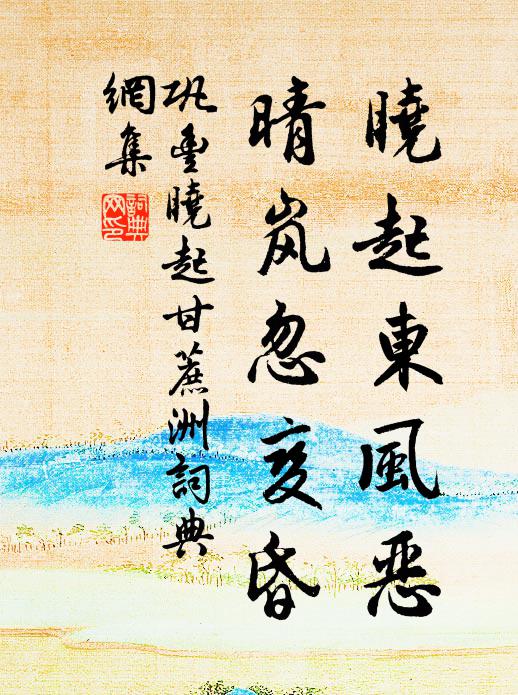 曉起東風惡
晴岚忽变昏
巩豊曉起甘蔗洲詞典
網集
詞典
网印